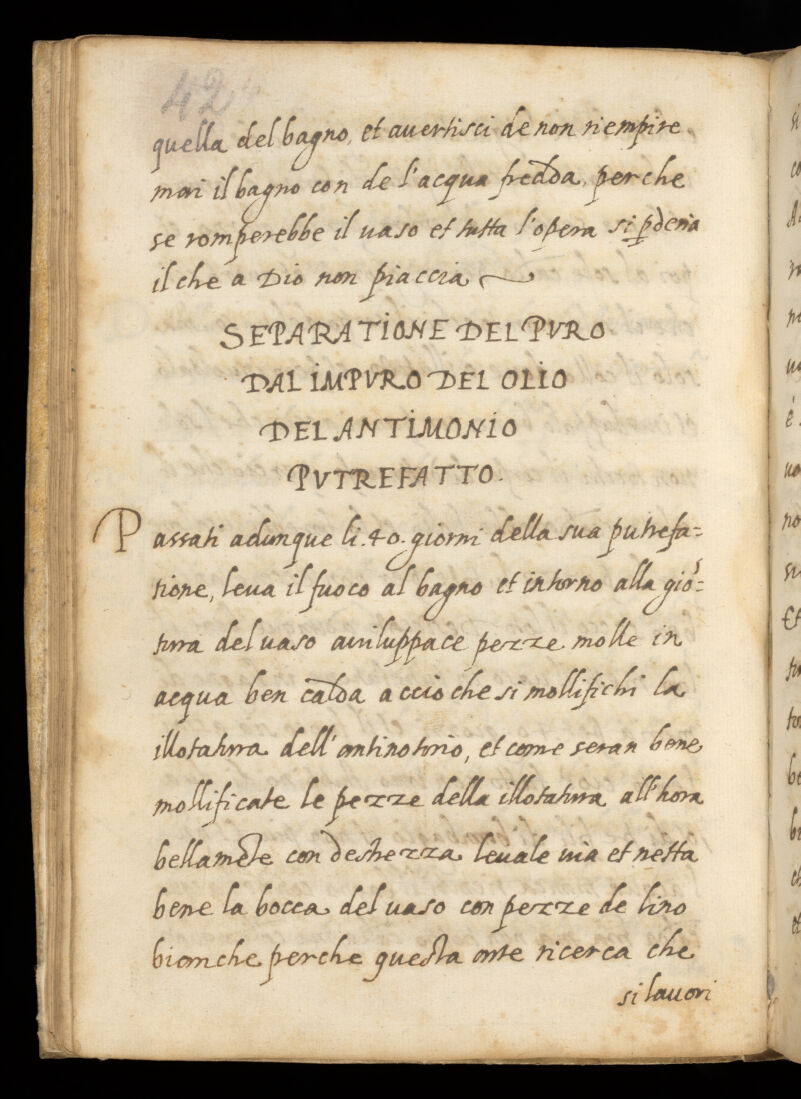 42
quella del bagno, et auertisci de non riempire
mai il bagno con de l'acqua fredda, perche
se romperebbe il uaso et tutta l'opera si pderia
il che a Dio non piaccia
SEPARATIONE DEL PVRO
DAL IMPVRO DEL OLIO
DEL ANTIMONIO
PVTREFATTO.
Passati adunque li .40. giorni della sua putrefa=
tione, leua il fuoco al bagno et intorno alla giõ=
tura del uaso auiluppace pezze molle in
acqua ben calda accio che si mollifichi la
illotatura dell'antinotorio, et come seran bene
mollificate le pezze della illotatura all'hora
bellamẽte con destrezza leuale uia et netta
bene la bocca del uaso con pezze de lino
bianche perche questa arte ricerca che
si lauori